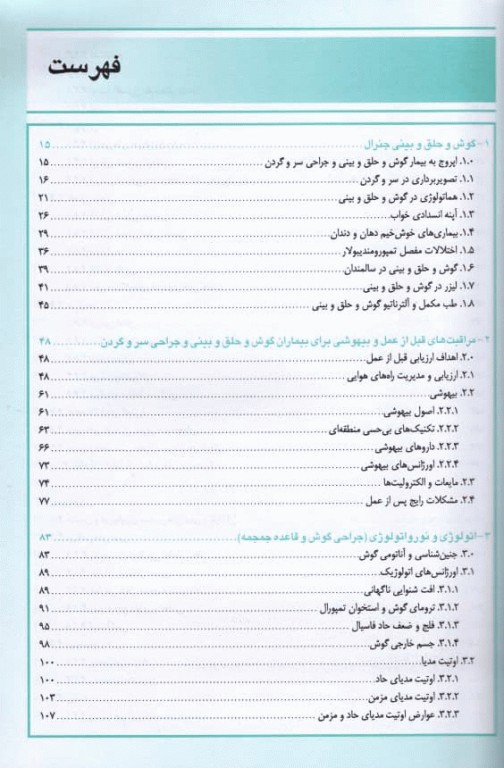 فهرست
۱- گوش و حلق و بینی جنرال ۱۵
۱.۰. اپروچ به بیمار گوش و حلق و بینی و جراحی سر و گردن ۱۵
۱.۱. تصویربرداری در سر و گردن ۱۶
۱.۲. هماتولوژی در گوش و حلق و بینی ۲۱
۱.۳. آپنه انسدادی خواب ۲۶
۱.۴. بیماری‌های خوش‌خیم دهان و دندان ۲۹
۱.۵. اختلالات مفصل تمپورومندیبولار ۳۶
۱.۶. گوش و حلق و بینی در سالمندان ۳۹
۱.۷. لیزر در گوش و حلق و بینی ۴۱
۱.۸. طب مکمل و آلترناتیو گوش و حلق و بینی ۴۵
۲- مراقبت‌های قبل از عمل و بیهوشی برای بیماران گوش و حلق و بینی و جراحی سر و گردن ۴۸
۲.۰. اهداف ارزیابی قبل از عمل ۴۸
۲.۱. ارزیابی و مدیریت راه‌های هوایی ۴۸
۲.۲. بیهوشی ۶۱
۲.۲.۱. اصول بیهوشی ۶۱
۲.۲.۲. تکنیک‌های بی‌حسی منطقه‌ای ۶۳
۲.۲.۳. داروهای بیهوشی ۶۶
۲.۲.۴. اورژانس‌های بیهوشی ۷۳
۲.۳. مایعات و الکترولیت‌ها ۷۴
۲.۴. مشکلات رایج پس از عمل ۷۷
۳- اتولوژی و نورواتولوژی (جراحی گوش و قاعده جمجمه) ۸۳
۳.۰. جنین‌شناسی و آناتومی گوش ۸۳
۳.۱. اورژانس‌های اتولوژیک ۸۹
۳.۱.۱. افت شنوایی ناگهانی ۸۹
۳.۱.۲. ترومای گوش و استخوان تمپورال ۹۱
۳.۱.۳. فلج و ضعف حاد فاسیال ۹۵
۳.۱.۴. جسم خارجی گوش ۹۸
۳.۲. اوتیت مدیا ۱۰۰
۳.۲.۱. اوتیت مدیای حاد ۱۰۰
۳.۲.۲. اوتیت مدیای مزمن ۱۰۳
۳.۲.۳. عوارض اوتیت مدیای حاد و مزمن ۱۰۷